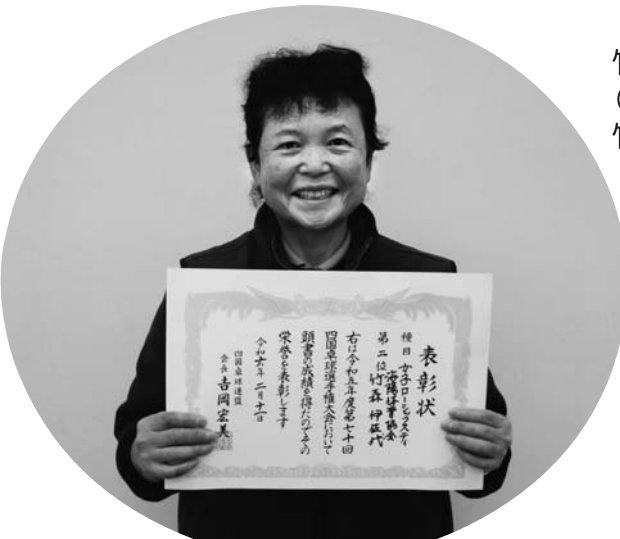 表彰状
種目 女子ローシックスティ
海陽体育協会
第二位 竹森伊佐代
右は令和五年度第七十回
四国卓球選手権大会において
頭書の成績を得たのでその
栄誉を表彰します
令和六年二月十一日
四国卓球連盟
会長 吉岡宏美